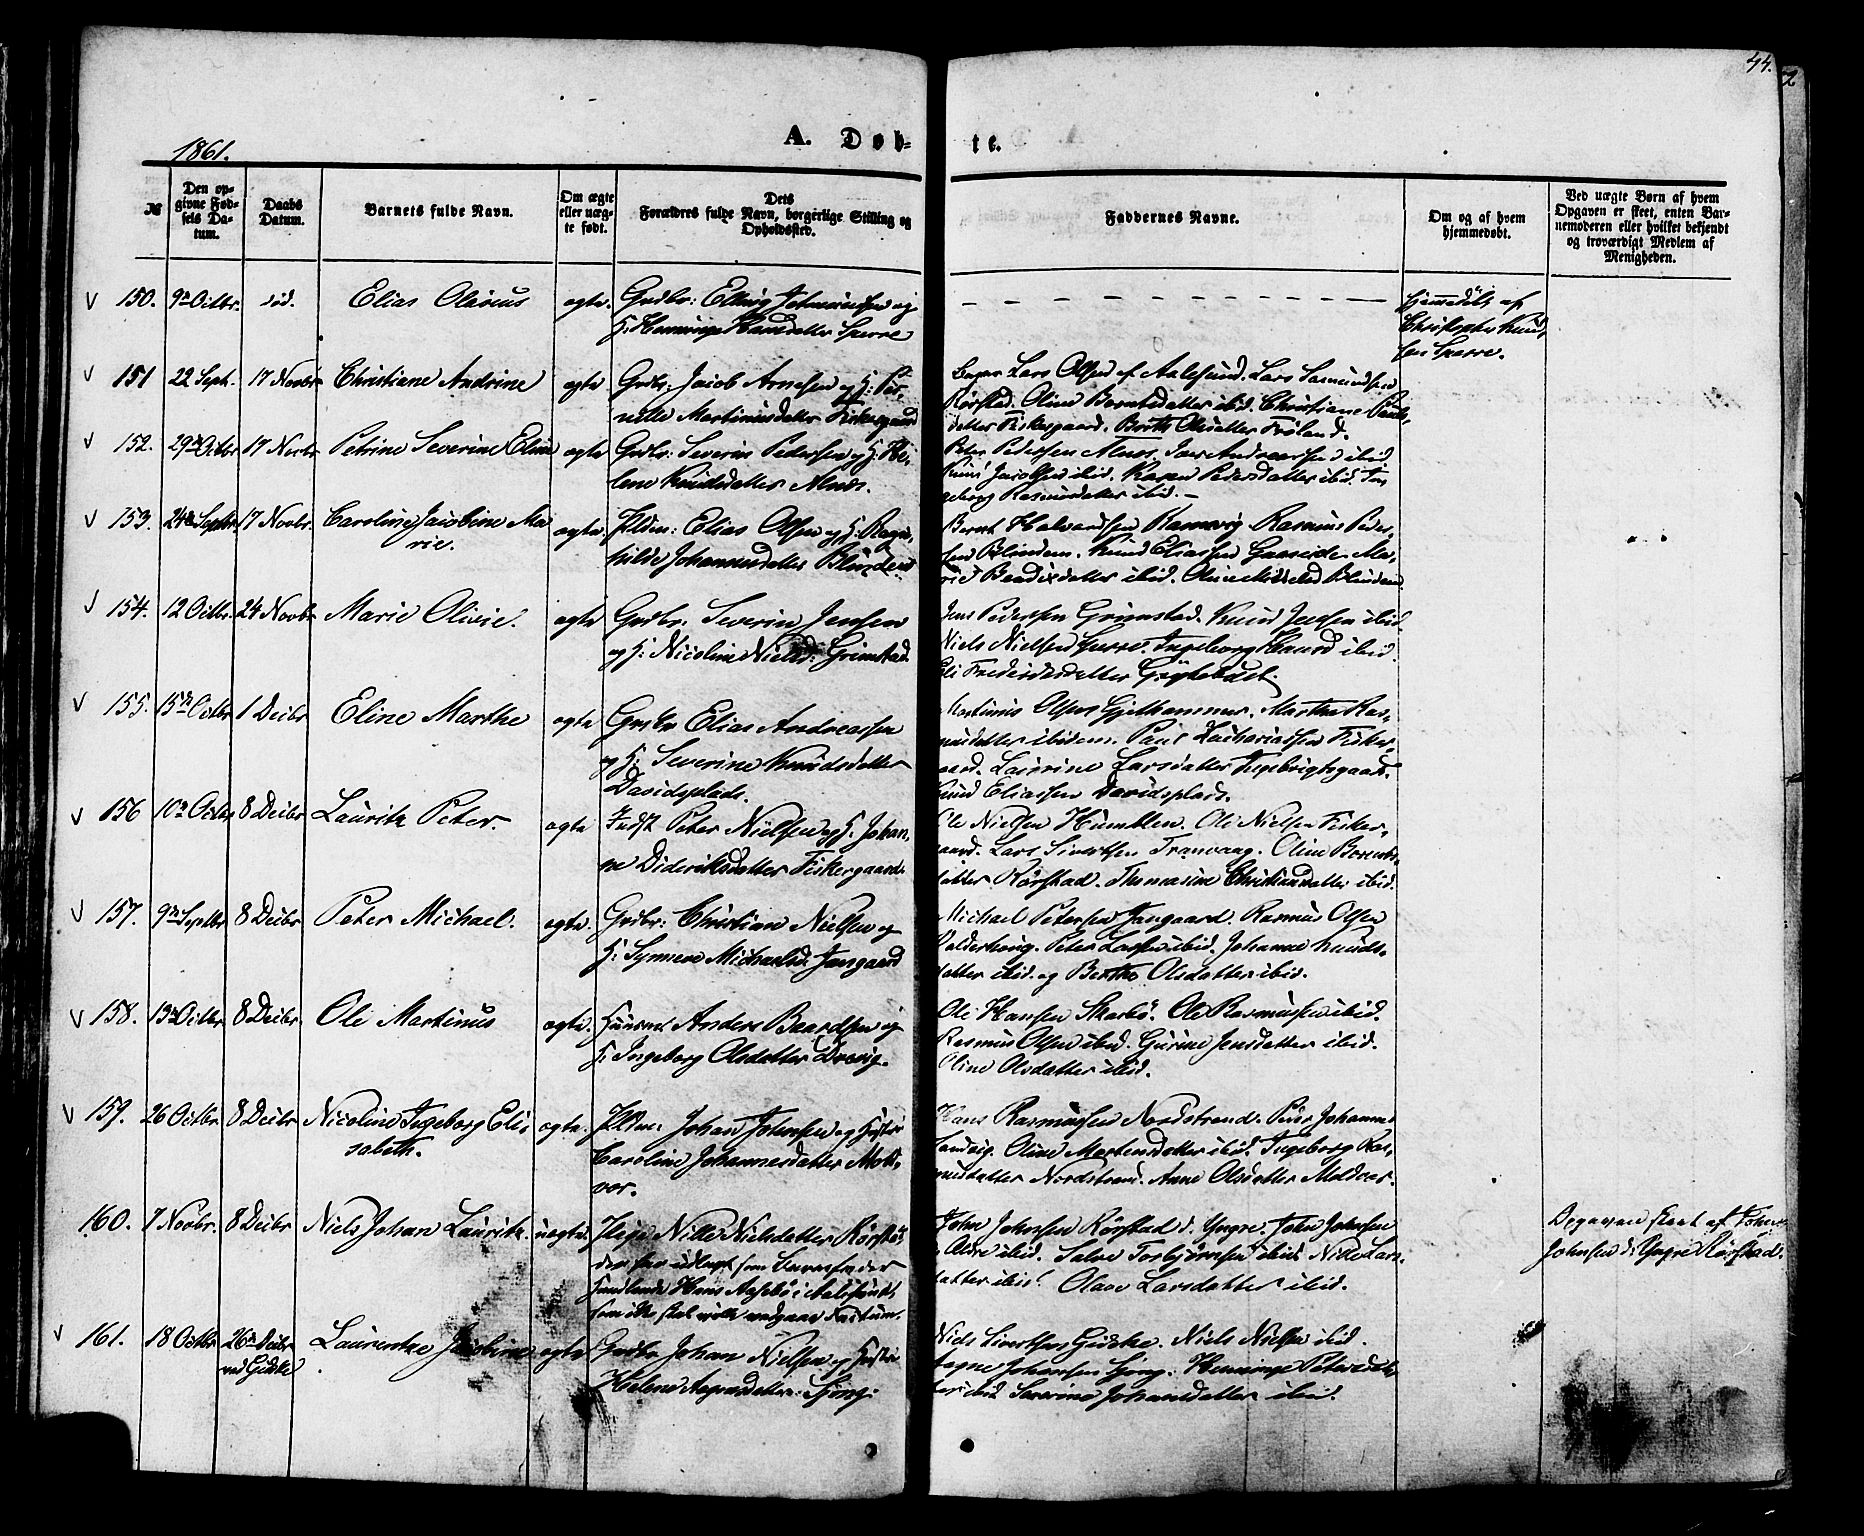 44.
1861.
A. Døb-
te.
№
Den op-
givne Fød-
sels Da-
tum.
Daabs
Datum.
Barnets fulde Navn.
Om ægte
eller uæg-
te født.
Dets
Forældres fulde Navn, borgerlige Stilling og
Opholdssted.
Faddernes Navne.
Om og af hvem
hjemmedøbt.
Ved uægte Børn af hvem
Opgaven er skeet, enten Bar-
nemoderen eller hvilket bekjendt
og troværdigt Medlem af
Menigheden.
150. 9n Octbr. död. Elias Olivus ægte. Grdbr: Elling Johnsen og
H: Henninge Hansdatter Sperre
Hjemmedöbt af
Christopher Knud-
sen Sperre.
151 22 Sept. 17 Novbr. Christiane Andrine ægte Grdbr: Jacob Arnesen og H: Per-
nille Martinusdatter Fiskergaard
Lars Olsen af Aalesund. Lars Samundsen
Rörstad. Oline Berntsdatter ibid. Christiane Pauls-
datter Fiskergaard. Brith Olsdatter Fröland.
152. 29n Octbr 17 Novbr. Petrine Severine Eline ægte Grdbr: Severin Pedersen og H: He-
lene Knudsdatter Alnæs.
Peter Pedersen Alnæs. Iver Andreassen ibid
Knud Jacobsen ibid. Karen Pedersdatter ibid. In-
geborg Rasmusdatter ibid. —
153. 24de Septbr 17 Novbr. Caroline Jacobine Ma-
rie. ægte. Elias Olsen og H: Ragn-
hilde Johannesdatter Blindem
Bernt Halvardsen Ramsvig. Rasmus Peder-
sen Blindem. Knud Eliassen Gaaseide. Ma-
rie Bendixdatter ibid. Oline Blindem.
154. 12 Octbr. 24 Novbr. Marie Olivie. ægte Grdbr: Severin Jensen
og H: Nicoline Nielsd: Grimstad.
Jens Pedersen Grimstad. Knud Jensen ibid.
Niels Nielsen Ingeborg Knudsd ibid.
155. 15n Octbr 1 Decbr Eline Marthe ægte Grdbr Elias Andreassen
og H: Severine Knudsdatter
Davidsplads.
Martinus Olsen Gjethammer. Marthe Ras-
musdatter ibidem. Paul Zachariassen Fisker-
gaard. Laurine Larsdatter Ingebrigtsgaard.
Knud Eliassen Davidsplads.
156 10n Octbr 8 Decbr Lauritz Peter. ægte Indst Peter Nielsen og H. Johan-
ne Dideriksdatter Fiskergaard.
Ole Nielsen Humblen. Ole Nielsen Fisker-
gaard. Lars Sivertsen Tranvaag. Oline Bernts-
datter Rörstad. Thomasine Christiansdatter ibid.
157. 9n Septbr 8 Decbr Peter Michael. ægte. Grdbr: Christian Nielsen og
H: Synneve Michaelsd: Jangaard
Michael Petersen Jangaard. Rasmus Olsen
Valderhoug. Peter Larsen ibid. Johanne Knuds-
datter ibid. og Berthe Olsdatter ibid.
158. 13n Octbr 8 Decbr. Ole Martinus ægte. Huusmd Anders Baardsen og
H. Ingeborg Olsdatter Drævig.
Ole Hansen Skarbö. Ole Rasmussen ibid.
Rasmus Olsen ibid. Gurine Jensdatter ibid.
Oline Olsdatter ibid.
159. 26 Octbr. 8 Decbr Nicoline Ingeborg Eli-
sabeth. ægte. Johan Johnsen og Hustru
Caroline Johannesdatter Mold-
vær.
Hans Rasmussen Nordstrand. Peter Johannes
Landvig. Oline Martensdatter ibid. Ingeborg Ras-
musdatter Nordstrand. Anne Olsdatter Moldvær.
160. 7 Novbr. 8 Decbr Niels Johan Lauritz. uægte. Pige Nille Nielsdatter Rörstad
der har udlagt som Barnefader
Hans Aasebö i Aalesund,
som ikke skal ville vedgaae
John Johnsen Rörstad d: Yngre. John Johnsen
d: Ældre ibid. Salve Torbjörnsen ibid. Nille Lars-
datter ibid. Olave Larsdatter ibid.
Opgaven skeet af John
Johnsen d: Yngre Rörstad.
161. 18 Octbr 26n Decbr
ved Giske Laurentze Jacobine ægte Grdbr Johan Nielsen og Hustru
Helene Aagesdatter Gjöng:
Niels Sivertsen Giske. Niels Nielsen ibid.
Johansen Gjöng. Henninge Petersdat-
ter ibid Severine Johansdatter ibid.